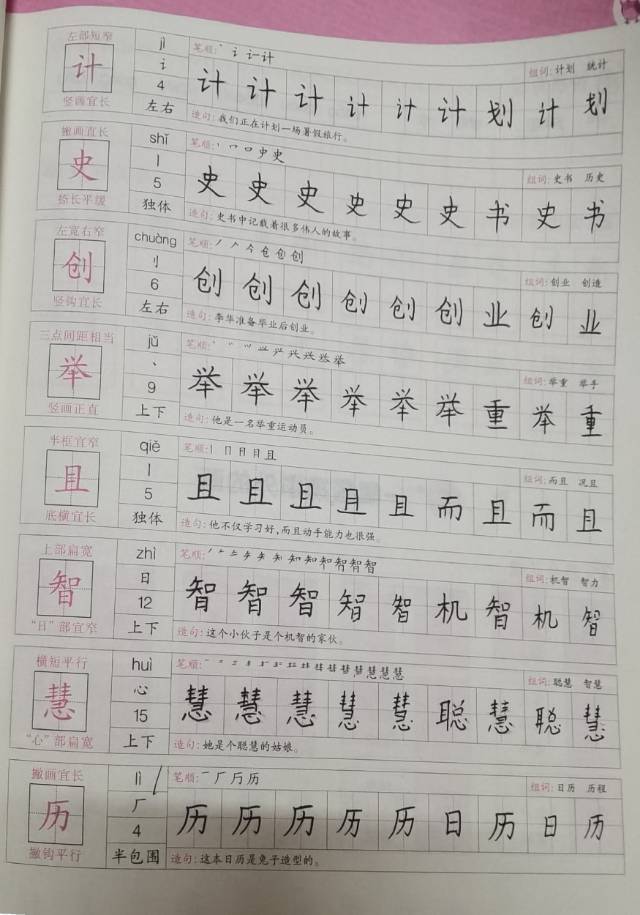 左部短窄 jì 笔顺: 丶 讠 计 组词: 计划 统计
计 讠 计 计 计 计 计 计 划 计 划
4
竖画宜长 左右 造句: 我们正在计划一场暑假旅行。
撇画直长 shǐ 笔顺: 丶 口 史 组词: 史书 历史
史 丨 史 史 史 史 史 史 书 史 书
5
捺长平缓 独体 造句: 史书中记载着很多伟人的故事。
左宽右窄 chuàng 笔顺: 丿 𠆢 今 仓 创 创 组词: 创业 创造
创 刂 创 创 创 创 创 创 业 创 业
6
竖钩宜长 左右 造句: 李华准备毕业后创业。
三点间距相当 jǔ 笔顺: 举 组词: 举重 举手
举 丶 举 举 举 举 举 举 重 举 重
9
竖画正直 上下 造句: 他是一名举重运动员。
半框宜窄 qiě 笔顺: 丨 冂 月 且 组词: 而且 况且
且 丨 且 且 且 且 且 而 且 而 且
5
底横宜长 独体 造句: 他不仅学习好,而且动手能力也很强。
上部扁宽 zhì 笔顺: 知 智 组词: 机智 智力
智 日 智 智 智 智 智 机 智 机 智
12
“日”部宜窄 上下 造句: 这个小伙子是个机智的家伙。
横短平行 huì 笔顺: 慧 慧 慧 组词: 聪慧 智慧
慧 心 慧 慧 慧 慧 慧 聪 慧 聪 慧
15
“心”部扁宽 上下 造句: 她是个聪慧的姑娘。
撇画宜长 lì 笔顺: 一 厂 历 历 组词: 日历 历程
历 厂 历 历 历 历 历 日 历 日 历
4
撇钩平行 半包围 造句: 这本日历是兔子造型的。